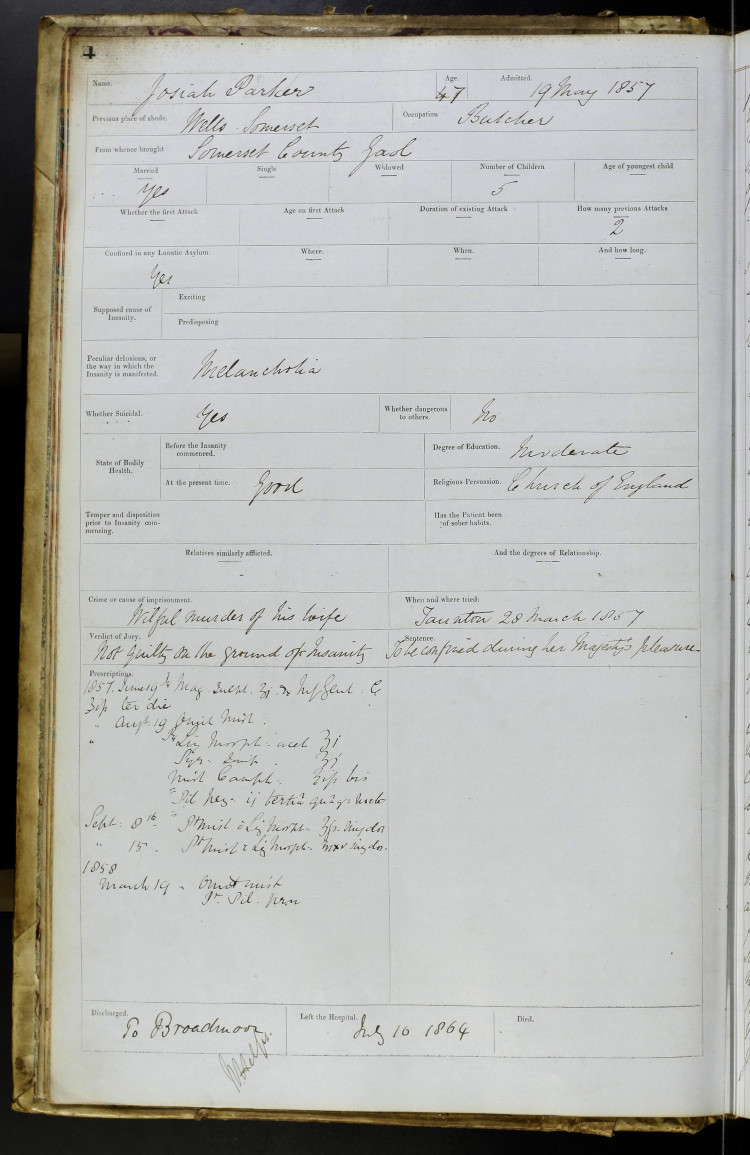 4
Name. Josiah Parker Age. 47 Admitted. 19 May 1857
Previous place of abode. Wells Somerset Occupation Butcher
From whence brought Somerset County Gaol
Married Single Widowed Number of Children Age of youngest child
Yes 5
Whether the first Attack Age on first Attack Duration of existing Attack How many previous Attacks
2
Confined in any Lunatic Asylum. Where. When. And how long.
Yes
Supposed cause of Insanity. Exciting
Predisposing
Peculiar delusions, or
the way in which the
Insanity is manifested.
Melancholia
Whether Suicidal. Yes Whether dangerous to others. No
State of Bodily Health. Before the Insanity commenced. Degree of Education. Moderate
At the present time. Good Religious Persuasion. Church of England
Temper and disposition
prior to Insanity com-
mencing.
Has the Patient been
of sober habits.
Relatives similarly afflicted. And the degrees of Relationship.
Crime or cause of imprisonment. When and where tried:
Wilful murder of his wife Taunton 28 March 1857
Verdict of Jury. Sentence.
Not guilty on the ground of Insanity To be confined during her Majesty's pleasure
Prescriptions.
1857. June 19th Mag. Sulph. Inf Gent. Co
ter die
" Augt 19 Omit Mist.
" Liq Morph. acet ʒj
Syr.
Mist Camph. bis
Pil tertia quaque nocte
Sept. 8th Mist c Liq Morph.
" 15 Mist c Liq Morph.
1858
March 19 Omit mist
Pil.
Discharged. To Broadmoor Left the Hospital. July 16 1864 Died.